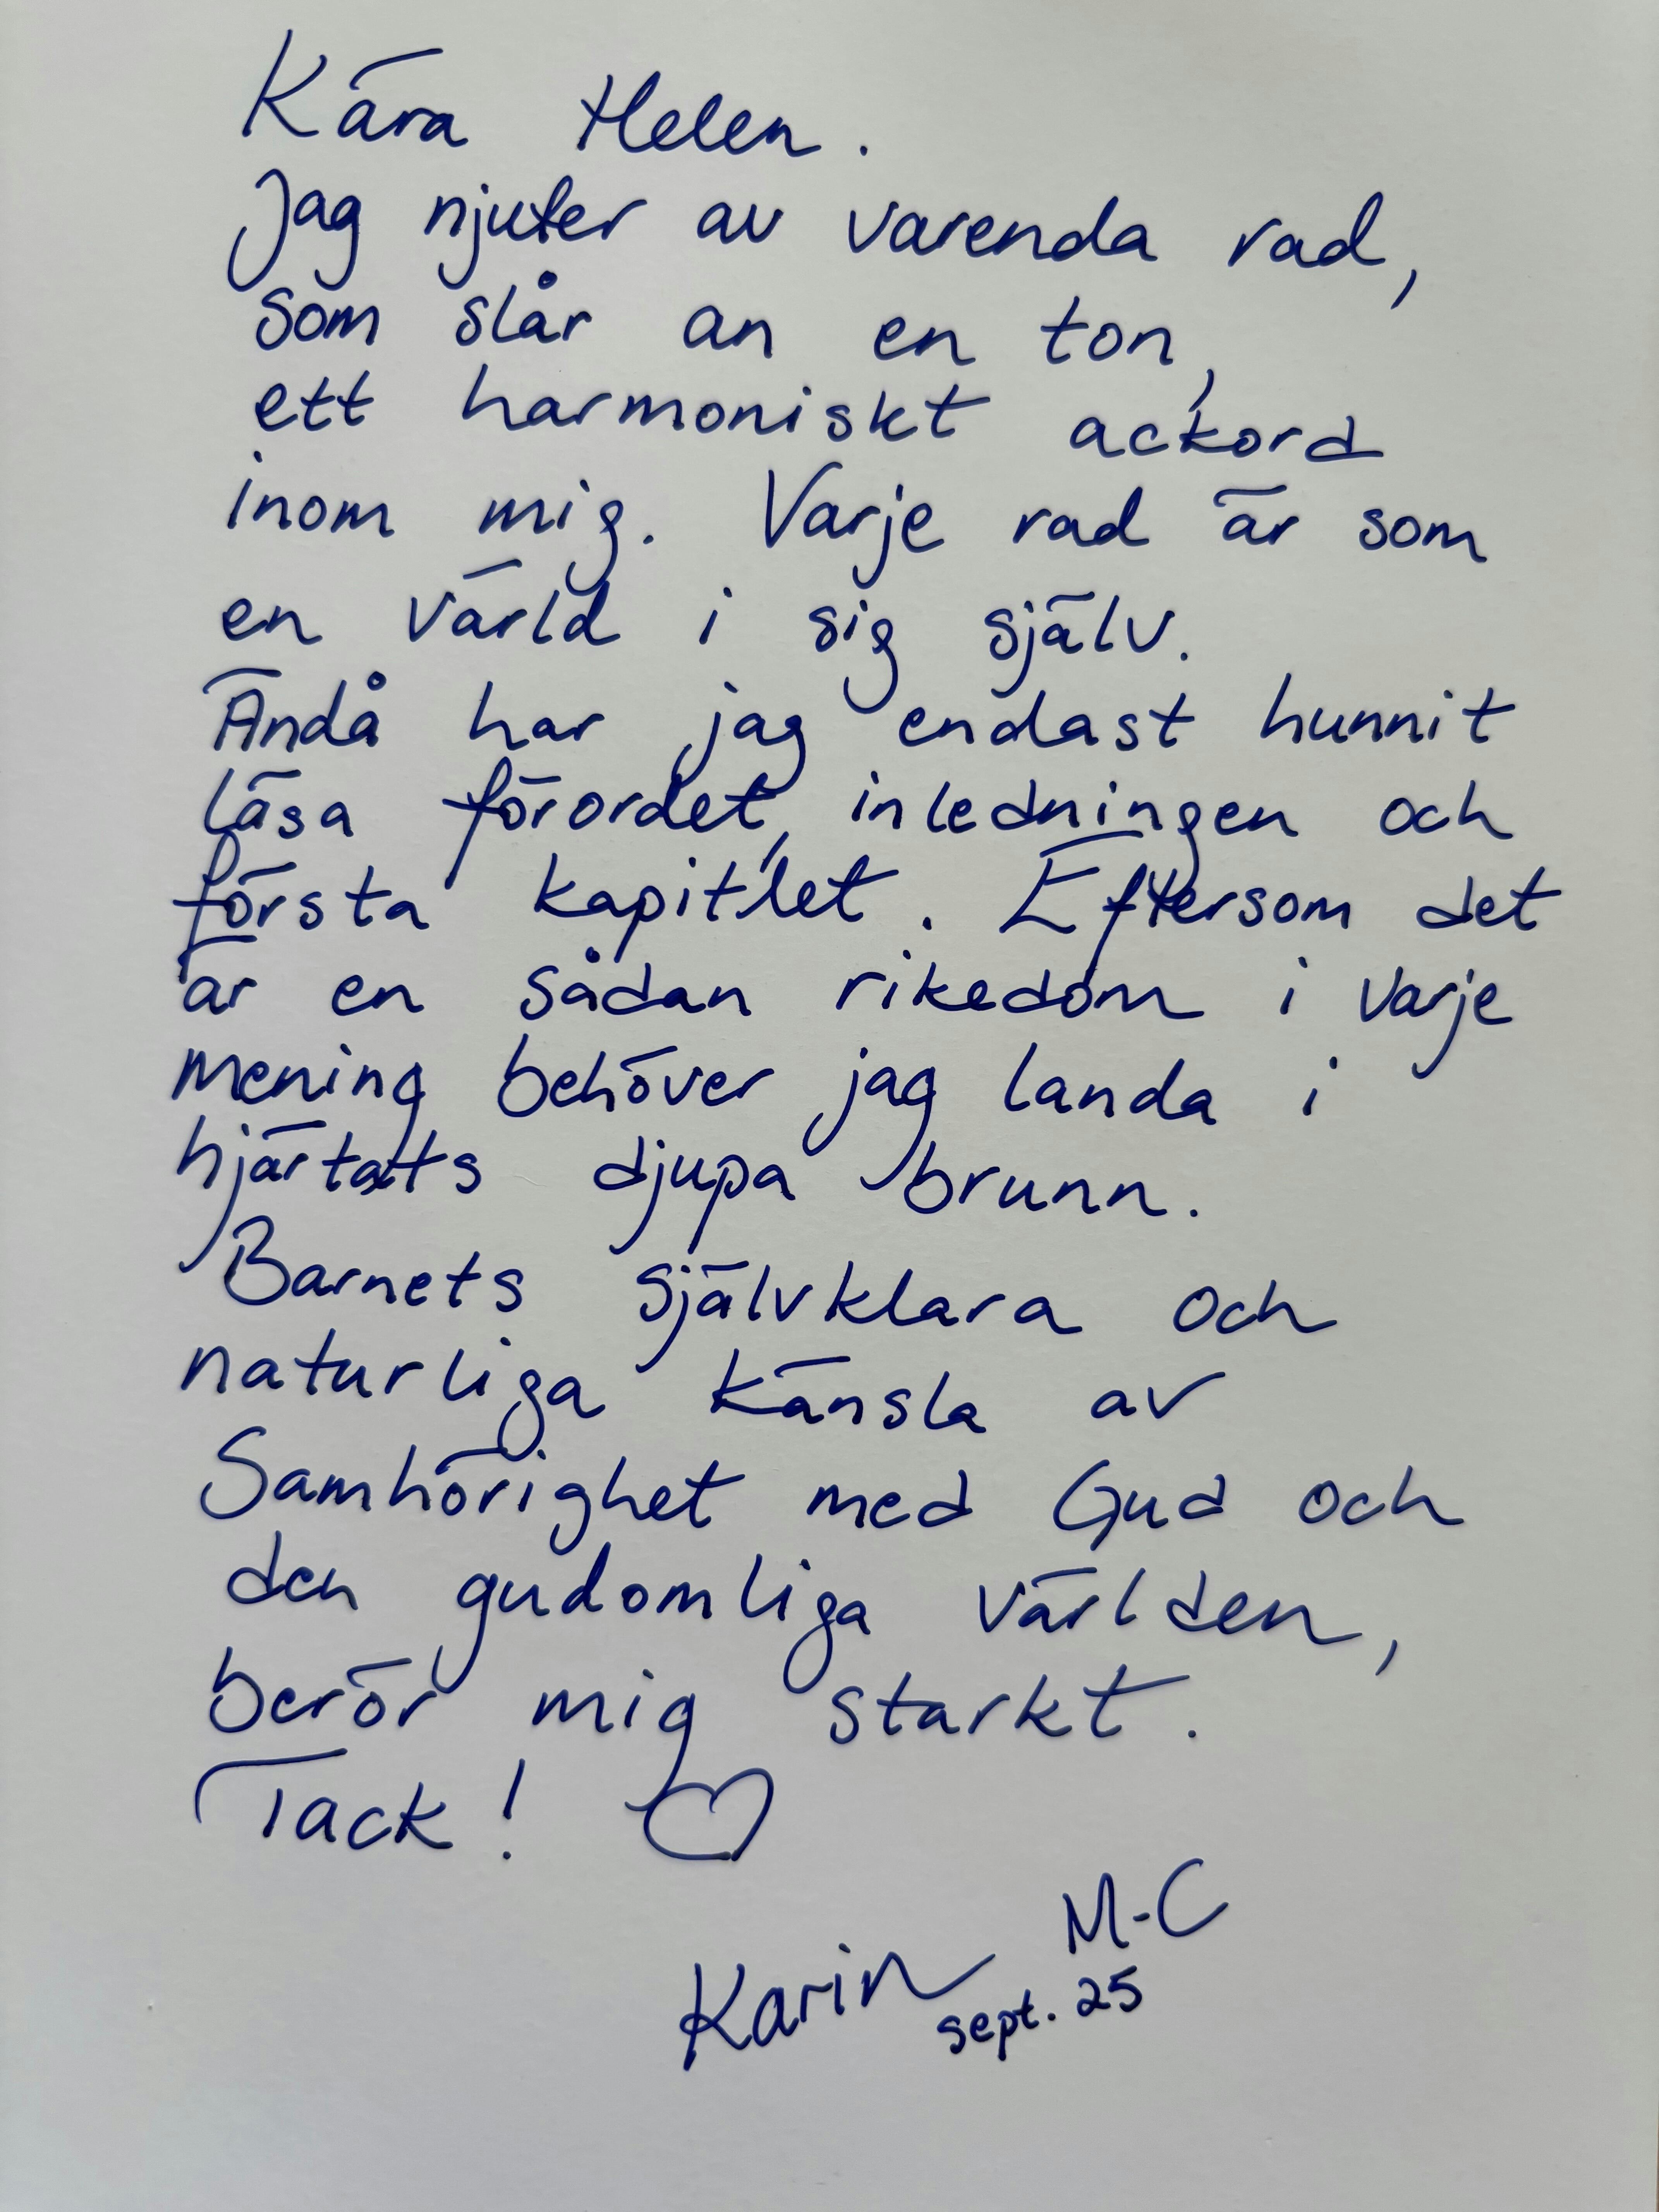 Kära Helen.
Jag njuter av varenda rad,
som slår an en ton,
ett harmoniskt ackord
inom mig. Varje rad är som
en värld i sig själv.
Ändå har jag endast hunnit
läsa förordet, inledningen och
första kapitlet. Eftersom det
är en sådan rikedom i varje
mening behöver jag landa i
hjärtats djupa brunn.
Barnets självklara och
naturliga känsla av
Samhörighet med Gud och
den gudomliga världen,
berör mig starkt.
Tack! ♡
Karin M-C
sept. 25